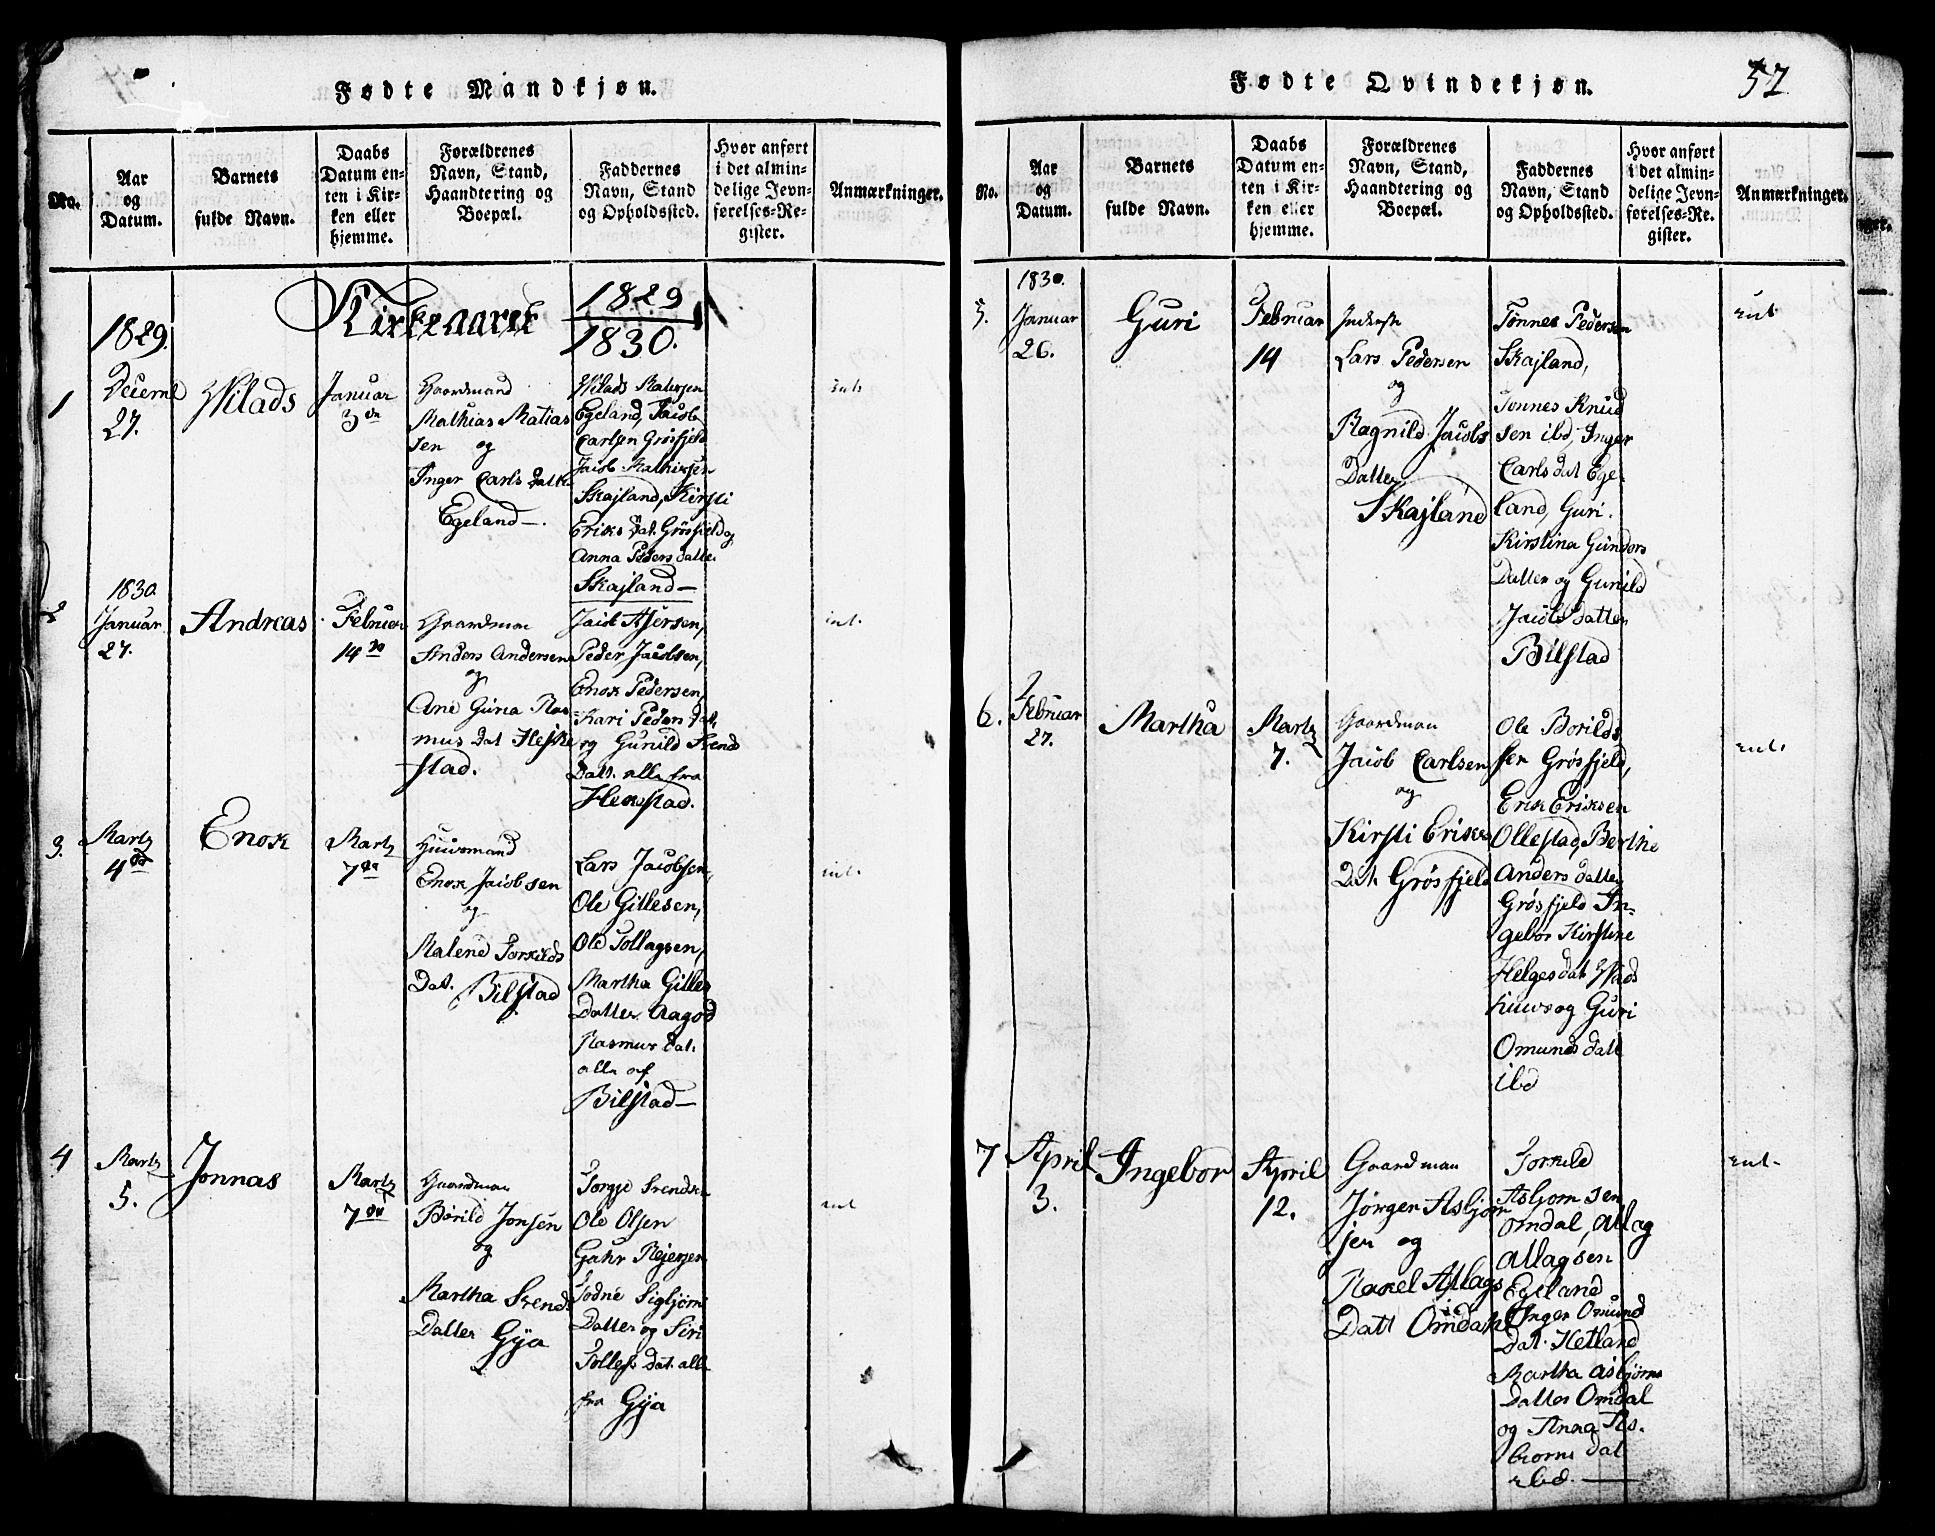 Fødte Mandkjøn.
No.
Aar
og
Datum.
Barnets
fulde Navn.
Daabs
Datum en-
ten i Kir-
ken eller
hjemme.
Forældrenes
Navn, Stand,
Haandtering og
Boepæl.
Faddernes
Navn, Stand
og Opholdssted.
Hvor anført
i det almin-
delige Jevn-
førelses-Re-
gister.
Anmærkninger.
Kirkeaaret 1829
1830.
1
1829.
Decemb
27.
Wilads
Januar
3de
Gaardmand
Mathias Matias
sen og
Inger Carls Datt.
Egeland—.
Wilads Mathisen
Egeland, Jacob
Carlsen Grøsfjeld
Jacob Mathisen
Skajland, Kirsti
Eriks Dat. Grøsfjeld og
Anna Peders Datte.
Skajland—
int.
2
1830
Januar
27.
Andreas
Februar
14de
Gaardman
Anders Andersen
og
Ane Guria Ras-
mus Dat Heskestad.
Jacob Asersen,
Peder Jacobsen,
Enok Pedersen,
Kari Peders Dat.
og Gunild Svends
Datt. alle fra
Heskestad.
int.
3.
Martz
4de
Enok
Martz
7de
Huusmand
Enok Jacobsen
og
Malene Torkilds
Dat. Bilstad
Lars Jacobsen,
Ole Gillesen,
Ole Tollagsen,
Martha Gilles
Datter Aagod
Rasmus Dat.
alle af
Bilstad—
int.
4
Martz
5.
Jonnas
Martz
7de
Gaardman
Borild Jonsen
og
Martha Svends
Datter Gya
Torgje Svendsen
Ole Olsen
Gahr Rejersen
Todne Sigbjørns
Datter og Siri
Tollefs Dat. alle
fra Gya
int
Fødte Qvindekjøn.
57
No.
Aar
og
Datum.
Barnets
fulde Navn.
Daabs
Datum en-
ten i Kir-
ken eller
hjemme.
Forældrenes
Navn, Stand,
Haandtering og
Boepæl.
Faddernes
Navn, Stand
og Opholdssted.
Hvor anført
i det almin-
delige Jevn-
førelses-Re-
gister.
Anmærkninger.
5.
1830.
Januar
26.
Guri
Februar
14
Inderste
Lars Pedersen
og
Ragnild Jacobs
Datter
Skajland
Tønnes Pedersen
Skajland,
Tonnes Knud
sen ibd, Inger
Carls Dat Ege-
land, Guri.
Kirstina Gunders
Datter og Gunild
Jacobs Datter
Bilstad
int
6.
Februar
27.
Martha
Martz
7.
Gaardman
Jacob Carlsen
og
Kirsti Eriks
Dat. Grøsfjeld
Ole Borilds
sen Grøsfjeld,
Erik Eriksen
Ollestad, Berthe
Anders Datter
Grøsfjeld In-
gebor Kirstine
Helges Dat
huus og Guri
Omunds Datt
ibd
int.
7
April
3.
Ingebor
April
12.
Gaardman
Jørgen Asbjørn
sen og
Rakel Atlags
Datt Omdahl
Torkild
Asbjørnsen
Omdal, Atlag
Atlagsen
Egeland
Inger Omund
Dat. Hetland
Martha Asbjørns
Datter Omdal
og Anna As-
biorns Dat
ibd.—
int.